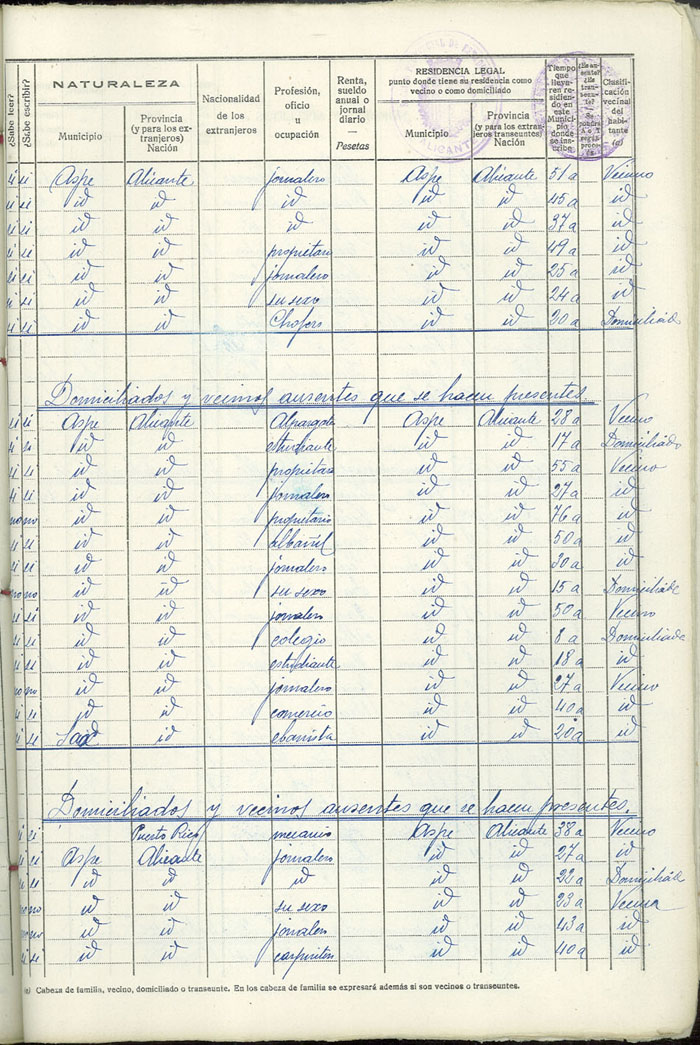 ¿Sabe leer? ¿Sabe escribir? NATURALEZA Nacionalidad de los extranjeros Profesión, oficio u ocupación Renta, sueldo anual o jornal diario — Pesetas RESIDENCIA LEGAL punto donde tiene su residencia como vecino o como domiciliado Clasificación vecinal del habitante (a)
Municipio Provincia (y para los extranjeros) Nación Municipio Provincia (y para los extranjeros transeuntes) Nación
si si Aspe Alicante jornalero Aspe Alicante 51 a Vecino
si si id id id id id 45 a id
si si id id id id id 37 a id
si si id id propietari id id 49 a id
si si id id jornalero id id 25 a id
si si id id su sexo id id 24 a id
si si id id Chofers id id 30 a Domiciliado
Domiciliados y vecinos ausentes que se hacen presentes.
si si Aspe Alicante Alpargate Aspe Alicante 28 a Vecino
si si id id estudiante id id 17 a Domiciliado
si si id id propietari id id 55 a Vecino
si si id id jornalero id id 27 a id
no no id id propietario id id 76 a id
si si id id albañil id id 50 a id
si si id id jornalero id id 30 a id
no no id id su sexo id id 15 a Domiciliado
si si id id jornalero id id 50 a Vecino
si si id id colegio id id 8 a Domiciliado
si si id id estudiante id id 18 a id
no no id id jornalero id id 27 a Vecino
si si id id comercio id id 40 a id
si si id ebanista id id 20 a id
Domiciliados y vecinos ausentes que se hacen presentes.
si si Puerto Rico mecanico Aspe Alicante 38 a Vecino
si si Aspe Alicante jornalero id id 27 a id
si si id id id id id 22 a Domiciliado
no no id id su sexo id id 23 a Vecina
no no id id jornalero id id 43 a id
si si id id carpintero id id 40 a id
(a) Cabeza de familia, vecino, domiciliado o transeunte. En los cabeza de familia se expresará además si son vecinos o transeuntes.